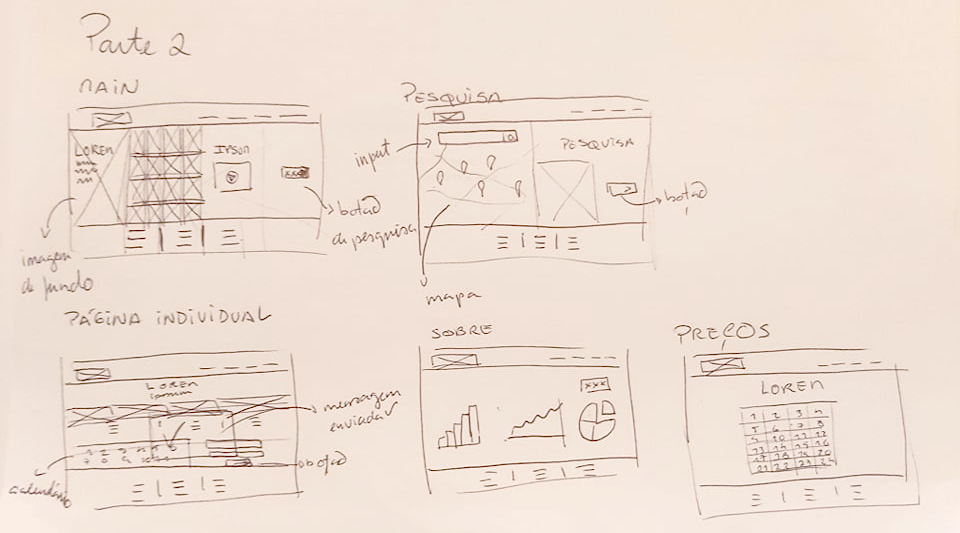 Parte 2
MAIN
LOREM
IPSUM
XXX
botão
de pesquisa
imagem
de fundo
PESQUISA
input
PESQUISA
botão
mapa
PÁGINA INDIVIDUAL
LOREM
ipsum
mensagem
enviada
botão
calendário
SOBRE
XXX
PREÇOS
LOREM
1 2 3 4
5 6 7 8
9 10 11 12
13 14 15 16
17 18 19 20
21 22 23 24